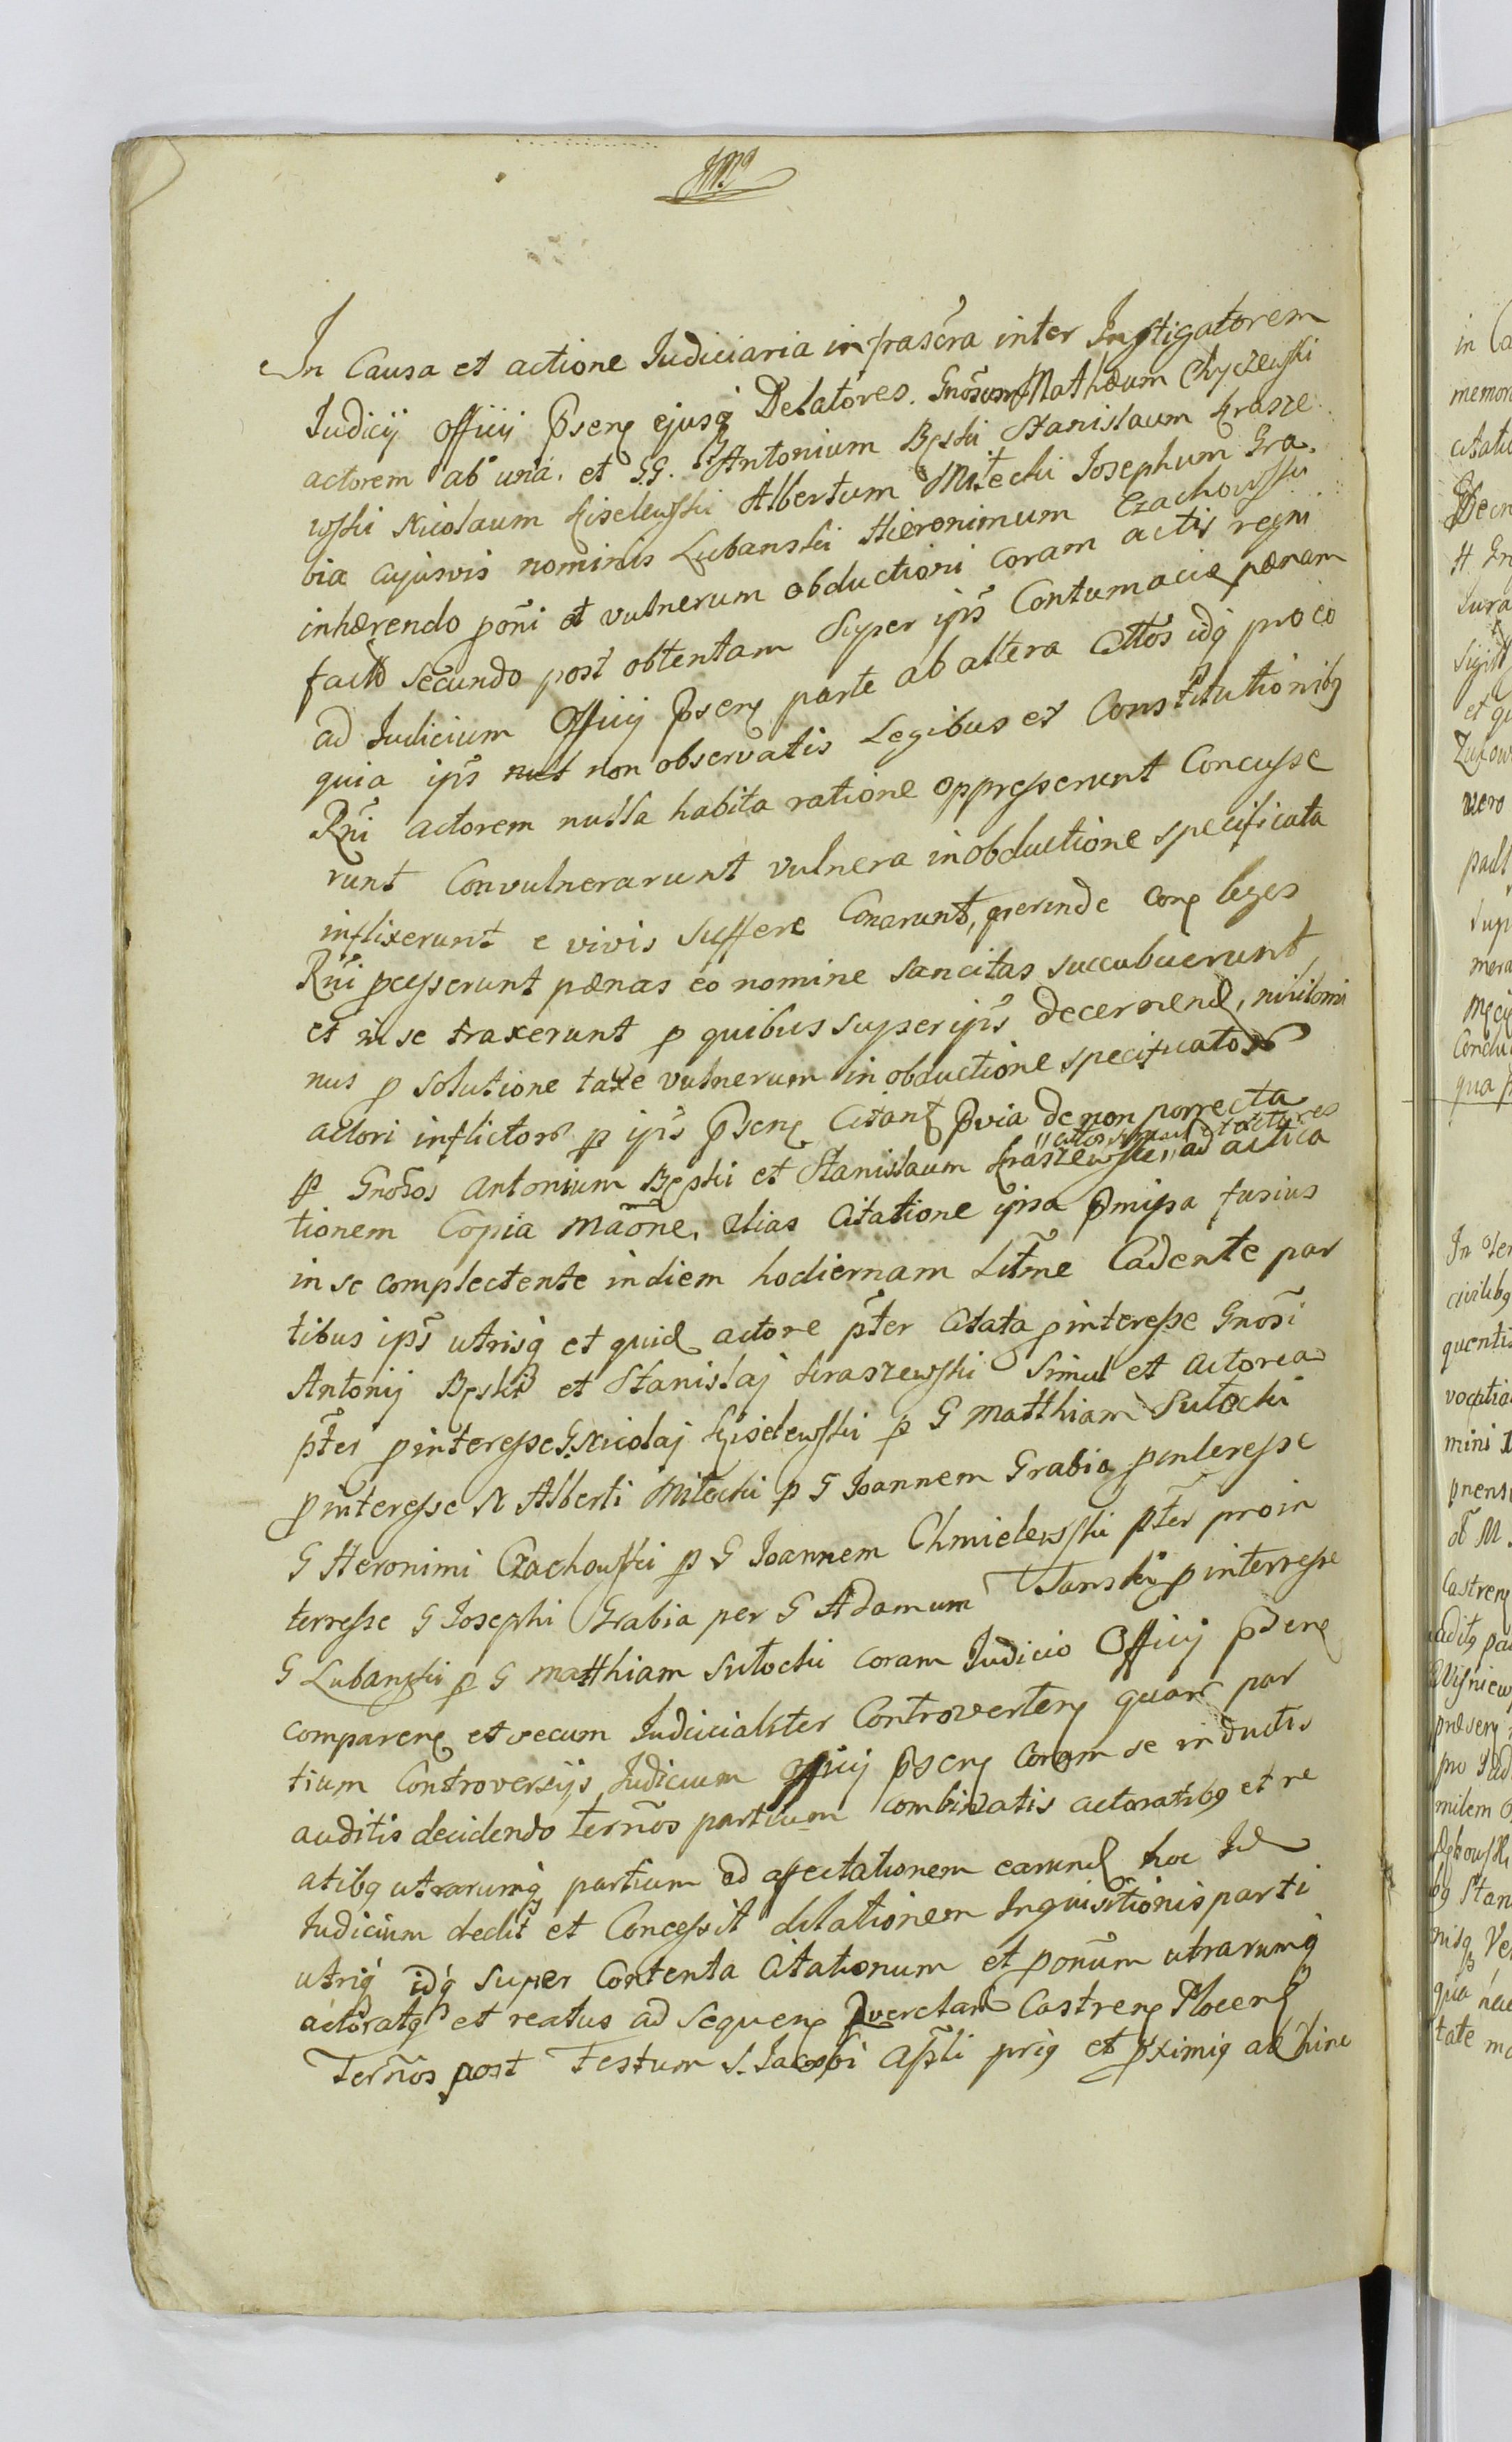 In Causa et actione Judiciaria infrascra inter Instigatorem
Judicij Officij Psens ejusq Delatores. Gnosum Mathæum Chyczewski
actorem ab una. et GG. Antonium Bęski Stanislaum Krasze
wski Nicolaum Kiselewski Albertum Mitecki Josephum Gra-
bia cujusvis nominis Lubanski Hieronimum Czachowski
inhærendo poni et vulnerum obductioni coram actis regni
factæ secundo post obtentam super ipis Contumaciæ pænam
ad Judicium Officij Psens parte ab altera Cttos idq pro eo
quia ipis non observatis Legibus et Constitutionibq
Rni actorem nulla habita ratione oppresserunt Concusse
runt Convulnerarunt vulnera in obductione specificata
inflixerunt e vivis Suffere Conarunt, perinde cons leges
Rni pcesserunt pænas eo nomine sancitas succubuerunt
et in se traxerunt p quibus super ipis decernend, nihilomi
nus p solutione taxe vulnerum in obductione specificator
actori inflictor p ipis Psens Citant Pvia de non porrecta
p Gnosos Antonium Bęski et Stanislaum Kraszewski ad actica
tionem Copia maone, alias Citatione ipsa Pmissa fusius
in se complectente in diem hodiernam Litme Cadente par
tibus ipis utrisq et quid actore pter Citata p interesse Gnosi
Antonij Bęski et Stanislaj Kraszewski Simul et actorea
pter p interesse G. Nicolaj Kiselewski p G Matthiam Sutocki
p interesse N Alberti Mitecki p G Joannem Grabia p interesse
G Heronimi Czachowski p G Joannem Chmielewski pter pro in
terresse G Josephi Grabia per G Adamum Tanski p interresse
G Lubanski p G Matthiam Sutocki coram Judicio Officij Psens
comparens et secum Judicialiter Controvertens quar par
tium Controversijs Judicium Officij Psens Coram se inductis
auditis decidendo ternos partium combinatis actoratibq et re
atibq utrarumq partium ad affectationem earund hoc Jud
Judicium dedit et Concessit dilationem Inquisitionis parti
utriq idq super Contenta Citationum et ponum utrarumq
actoratq et reatus ad sequens Querelar Castrens Plocens
Ternos post Festum S. Jacobi Apli priq et pximiq ad hinc